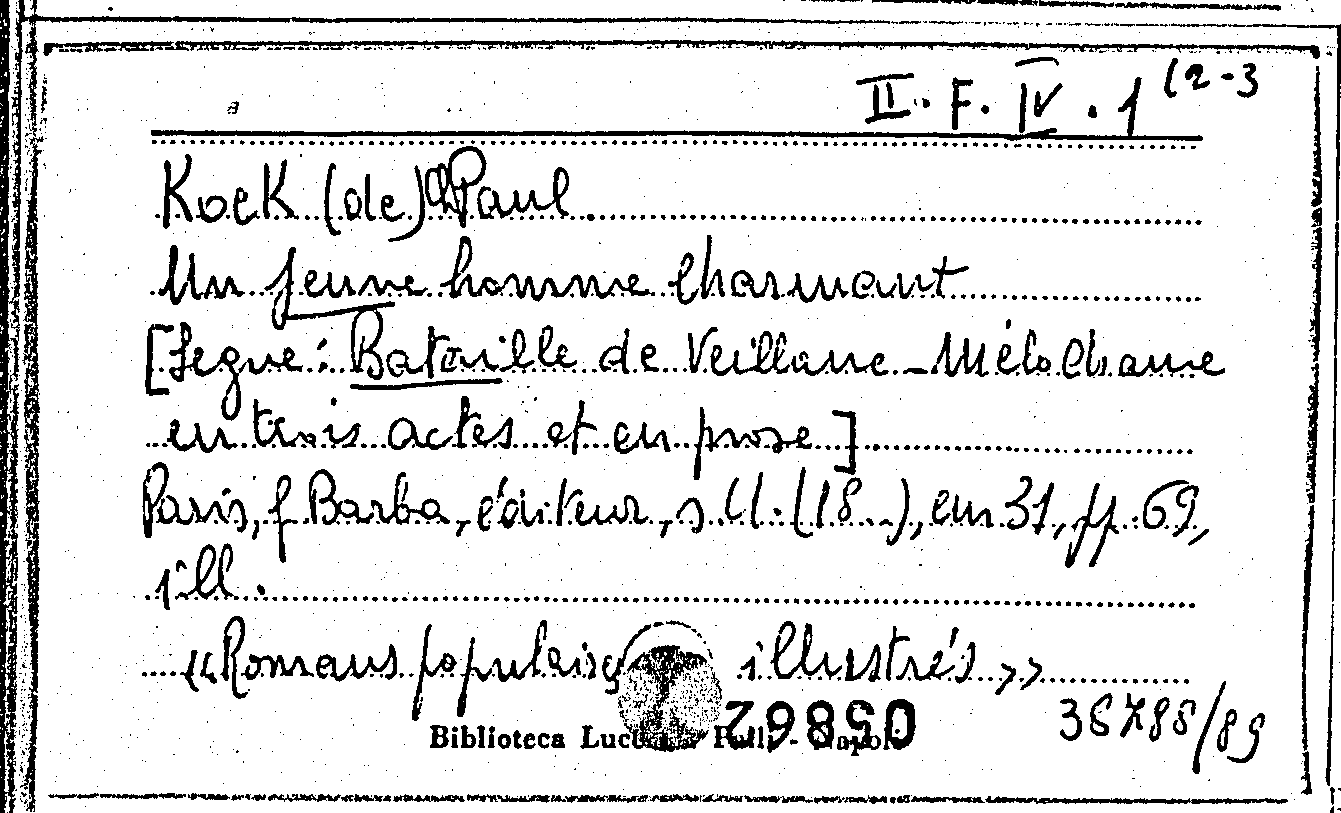 II. F. IV. 1 (2-3
Kock (de) Ch Paul.
Un Jeune homme charmant
[Segue: Bataille de Veillane - Mélodrame
en trois actes et en prose]
Paris, G Barba, éditeur, s.d. (18..), cm 31, pp. 69,
ill.
«Romans populaires illustrés»
058862
38788/89
Biblioteca Lucchesi Palli - Napoli